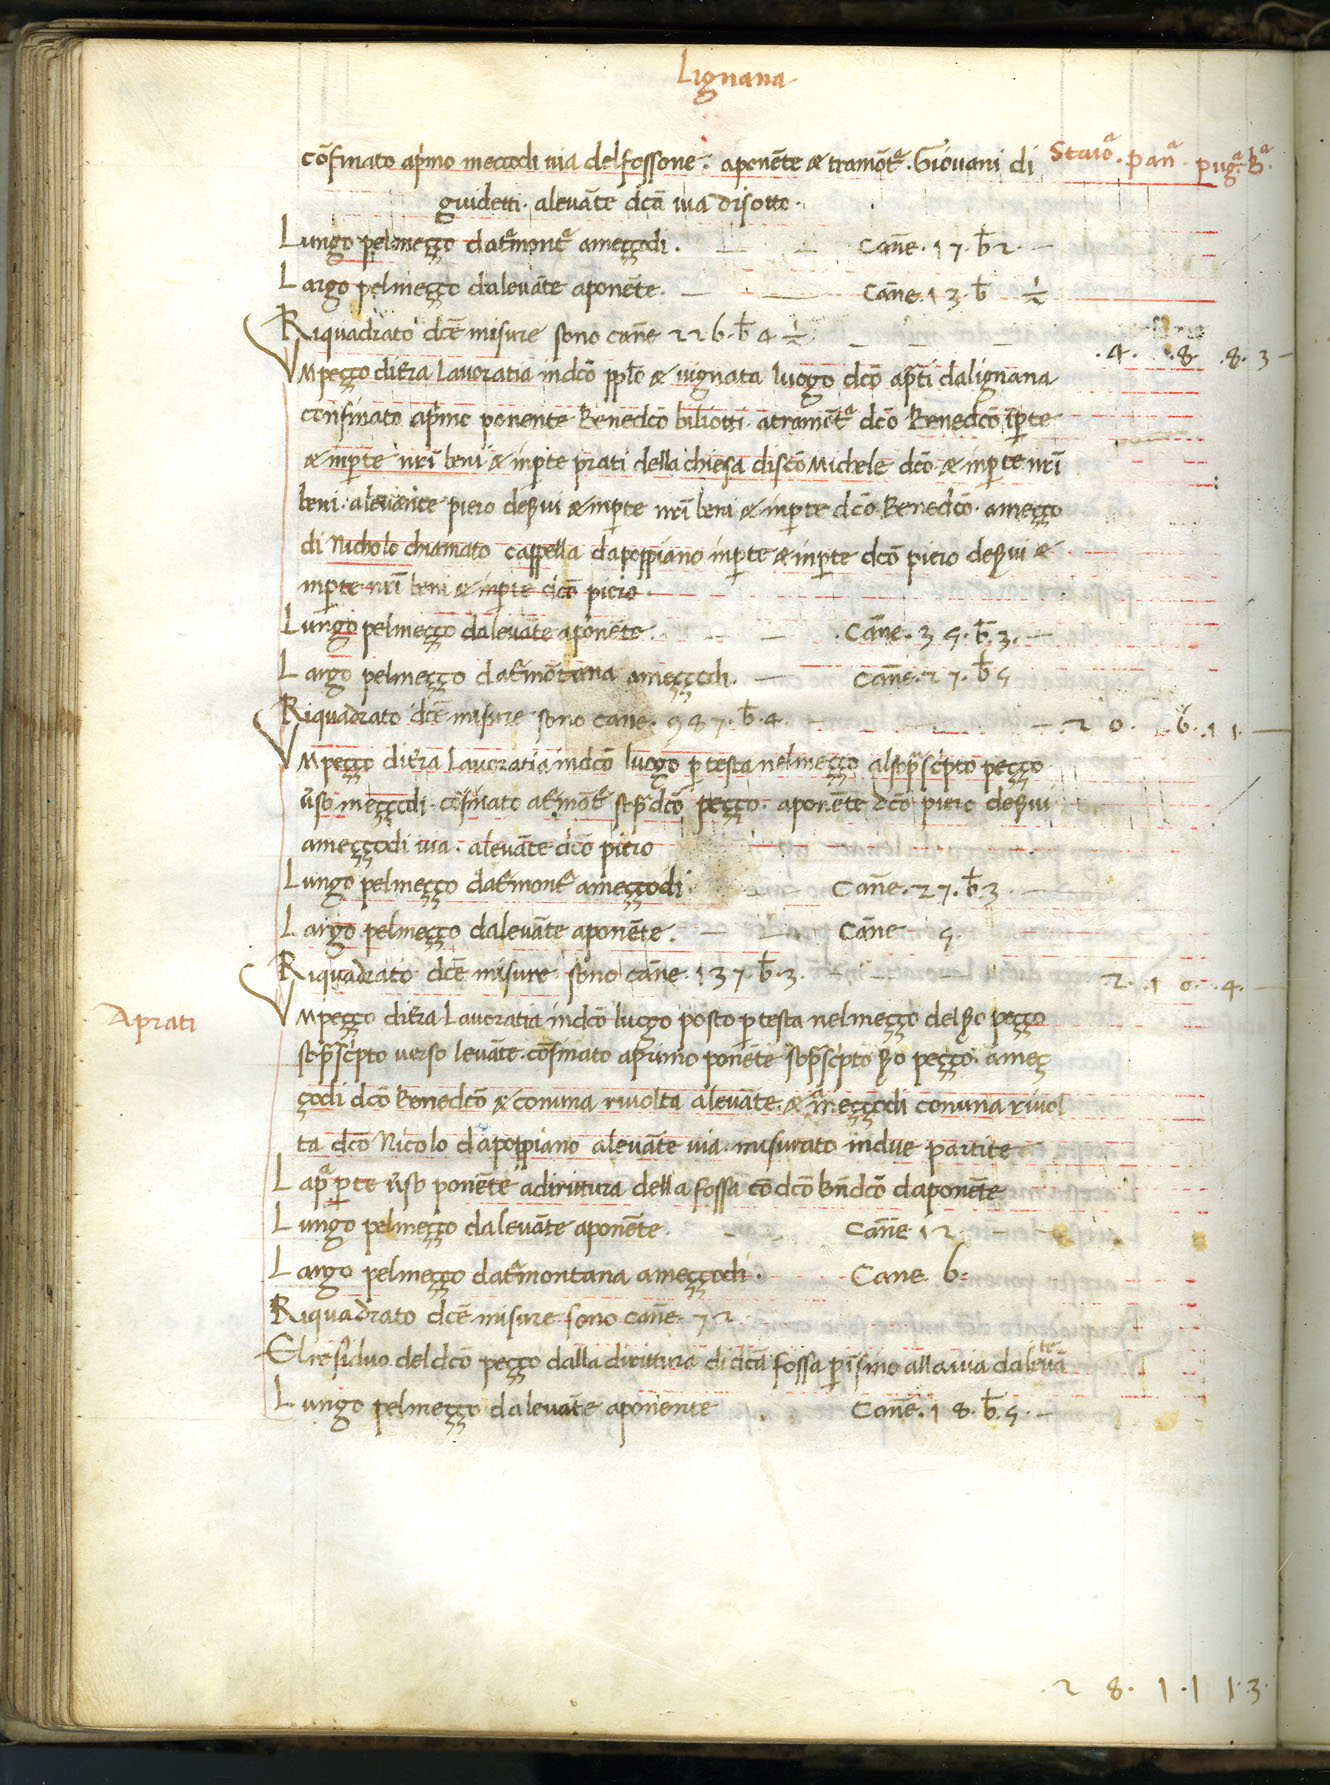 Lignana
Staioᵃ · panᵃ · pugᵃ · bᵃ
cōfinato ap̄mo mezzodi via del fossone · aponēte & tramōtᵃ · Giovani di
guidetti · alevāte dcā via disotto ·
Lungo pelmezzo datᵉmontᵃ amezzodi · Cane · 17 · b̄ 2 · —
Largo pelmezzo dalevāte aponēte · — Cane · 13 · b̄ ½
Riquadrato dcē misure sono cane 226 · b̄ 4 ½ · 4 · · 8 · 8 · 3 —
Vmpezzo di tēra Lavoratia indcō pplō & vignata luogo dcō ap̄ti dalignana
confinato ap̄mo ponente Benedcō biliotti · atramōtᵃ dcō Benedcō īp̄te
& inp̄te nr̄i beni & inp̄te prati della chiesa discō Michele dcō · & inp̄te nr̄i
beni · alevante piero de &vi & inp̄te nr̄i beni & inp̄te dcō Benedcō · amezzo
di Nicholo chiamato cappella dapoppiano inp̄te & inp̄te dcō piero
inp̄te nr̄i beni & inp̄te dcō piero ·
Lungo pelmezzo dalevāte aponēte · — · Cane · 35 · b̄ · 3 · —
Largo pelmezzo datᵉmōtana amezzodi · — Cane · 27 · b̄ 5
Riquadrato dcē misure sono cane · 987 · b̄ · 4 · — · 2 0 · · 6 · · 11 · —
Vmpezzo di tēra Lavoratia indcō luogo p̄ testa nelmezzo alsop̄scpto pezzo
v̄so mezzodi · cōfinato atᵉmōtᵃ sop̄dcō pezzo · aponēte dcō piero
amezzodi via · alevāte dcō piero
Lungo pelmezzo datᵉmontᵃ amezzodi · — Cane · 27 · b̄ · 3 · —
Largo pelmezzo dalevāte aponēte · — Cāne 5 ·
Riquadrato dcē misure sono cāne · 137 · b̄ · 3 · — · 2 · · 1 0 · · 4 · —
Aprati
Vmpezzo di tēra Lavoratia indcō luogo posto p̄ testa nelmezzo pezzo
sop̄scpto verso levāte · cōfinato ap̄rimo ponēte sop̄scpto pezzo · amez
zodi dcō Benedcō & comuna rivolta alevāte · & amezzodi comuna rivol
ta dcō Nicolo dapoppiano alevāte via · misurato indue partite
Lapᵃ p̄te v̄so ponēte adirittura della fossa cō dcō bn̄dcō daponēte
Lungo pelmezzo dalevāte aponēte · — Cane · 12 · —
Largo pelmezzo datᵉmontana amezzodi · Cane 6 ·
Riquadrato dcē misure sono cane · 72 ·
El residuo deldcō pezzo dalla dirittura di dcā fossa p̄ īsino allavia dalevāᵗᵉ
Lungo pelmezzo dalevāte aponente · Cane · 18 · b̄ · 5 · —
· 2 8 · 1 · 1 1 · 3 ·